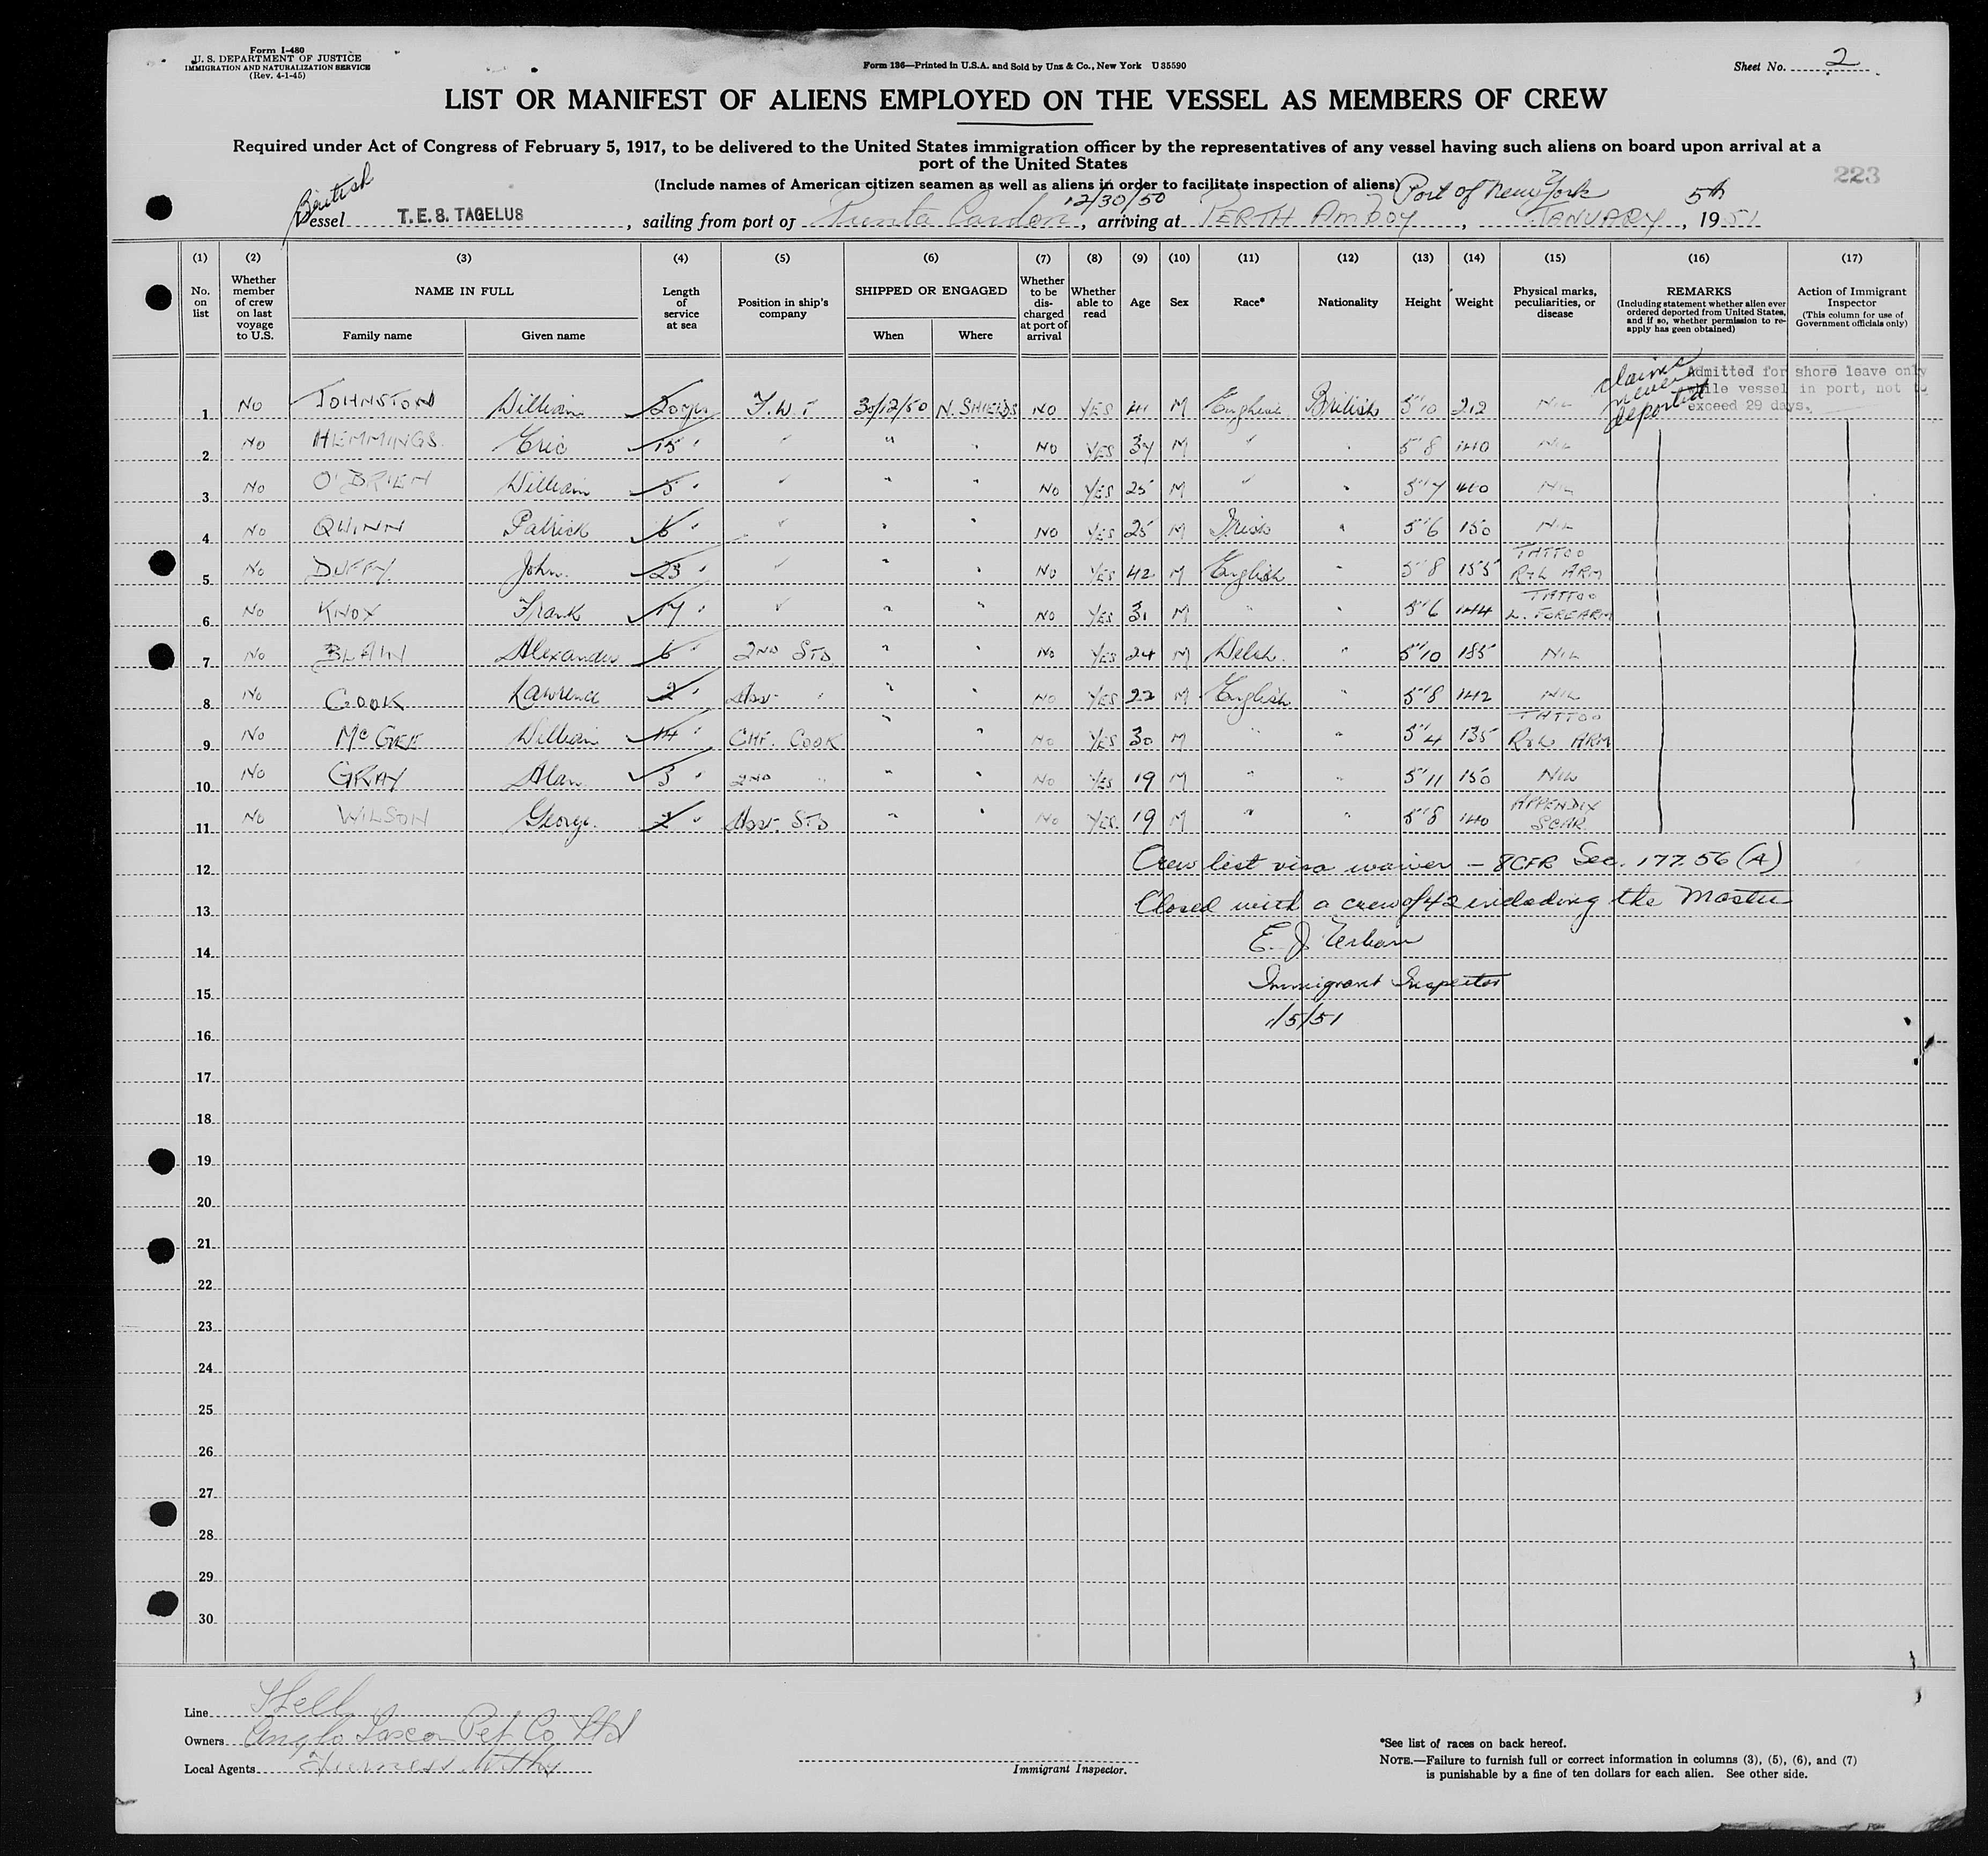 Form I-480
U. S. DEPARTMENT OF JUSTICE
IMMIGRATION AND NATURALIZATION SERVICE
(Rev. 4-1-45)
Form 136—Printed in U.S.A. and Sold by Unz & Co., New York U 35590
Sheet No. 2
LIST OR MANIFEST OF ALIENS EMPLOYED ON THE VESSEL AS MEMBERS OF CREW
Required under Act of Congress of February 5, 1917, to be delivered to the United States immigration officer by the representatives of any vessel having such aliens on board upon arrival at a
port of the United States
223
(Include names of American citizen seamen as well as aliens in order to facilitate inspection of aliens)
British 12/30/50 Port of New York
Vessel T.E.S. TAGELUS, sailing from port of Punta Cardon, arriving at PERTH AMBOY, JANUARY 5th, 1951
(1) (2) (3) (4) (5) (6) (7) (8) (9) (10) (11) (12) (13) (14) (15) (16) (17)
No. on list
Whether member of crew on last voyage to U.S.
NAME IN FULL
Family name
Given name
Length of service at sea
Position in ship's company
SHIPPED OR ENGAGED
When
Where
Whether to be discharged at port of arrival
Whether able to read
Age
Sex
Race*
Nationality
Height
Weight
Physical marks, peculiarities, or disease
REMARKS
(Including statement whether alien ever ordered deported from United States, and if so, whether permission to re-apply has geen obtained)
Action of Immigrant Inspector
(This column for use of Government officials only)
claims never deported
Admitted for shore leave only
while vessel in port, not to
exceed 29 days.
1 No JOHNSTON William 20 yrs F.W.T 30/12/50 N. SHIELDS NO YES 41 M English British 5'10 212 NIL
2 No HEMMINGS Eric 15 " " " " NO YES 34 M " " 5'8 140 NIL
3 No O'BRIEN William 5 " " " " NO YES 25 M " " 5'7 140 NIL
4 No QUINN Patrick 6 " " " " NO YES 25 M Irish " 5'6 150 NIL
5 No DUFFY John 23 " " " " NO YES 42 M English " 5'8 155 TATTOO R+L ARM
6 No KNOX Frank 17 " " " " NO YES 31 M " " 5'6 144 TATTOO L. FOREARM
7 No BLAIN Alexander 6 " 2ND STD " " NO YES 24 M Welsh " 5'10 185 NIL
8 No COOK Lawrence 2 " Asst " " " NO YES 22 M English " 5'8 142 NIL
9 No McGEE William 14 " CHF. COOK " " NO YES 30 M " " 5'4 135 TATTOO R+L ARM
10 No GRAY Alan 3 " 2ND " " " NO YES 19 M " " 5'11 150 NIL
11 No WILSON George 2 " Asst. STD " " NO YES 19 M " " 5'8 140 APPENDIX SCAR
12 Crew list visa waiver – 8CFR Sec. 177.56 (A)
13 Closed with a crew of 42 including the Master
14 E. J.
15 Immigrant Inspector
16 1/5/51
17
18
19
20
21
22
23
24
25
26
27
28
29
30
Line Shell
Owners Anglo Saxon Pet. Co Ltd
Local Agents Furness Withy
Immigrant Inspector.
*See list of races on back hereof.
NOTE.—Failure to furnish full or correct information in columns (3), (5), (6), and (7)
is punishable by a fine of ten dollars for each alien. See other side.